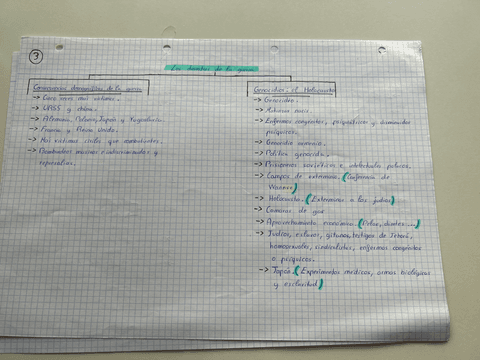 3
Los desastres de la guerra
Consecuencias demográficas de la guerra
-> Cinco veces más víctimas.
-> URSS y China.
-> Alemania, Polonia, Japón y Yugoslavia.
-> Francia y Reino Unido.
-> Más víctimas civiles que combatientes.
-> Bombardeos masivos indiscriminados y
represalias.
Genocidios: el Holocausto
-> Genocidio.
-> nazi.
-> Enfermos congénitos, psiquiátricos y disminuidos
psíquicos.
-> Genocidio
-> Política genocida.
-> Prisioneros soviéticos e intelectuales polacos.
-> Campos de exterminio. (Conferencia de
Wannsee)
-> Holocausto. (Exterminio a los judíos)
-> Cámaras de gas
-> Aprovechamiento económico. (Pelo, dientes...)
-> Judíos, eslavos, gitanos, testigos de Jehová,
homosexuales, sindicalistas, enfermos congénitos
o psíquicos.
-> Japón. (Experimentos médicos, armas biológicas
y esclavitud)